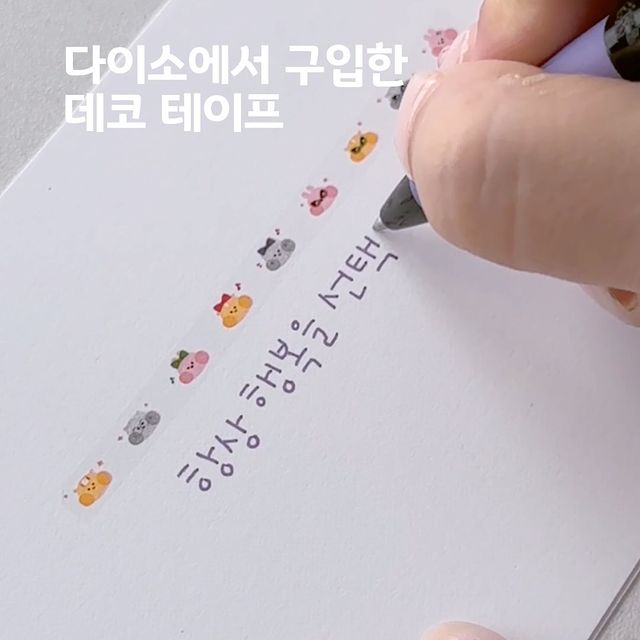 다이소에서 구입한
데코 테이프
항상 행복을 선택